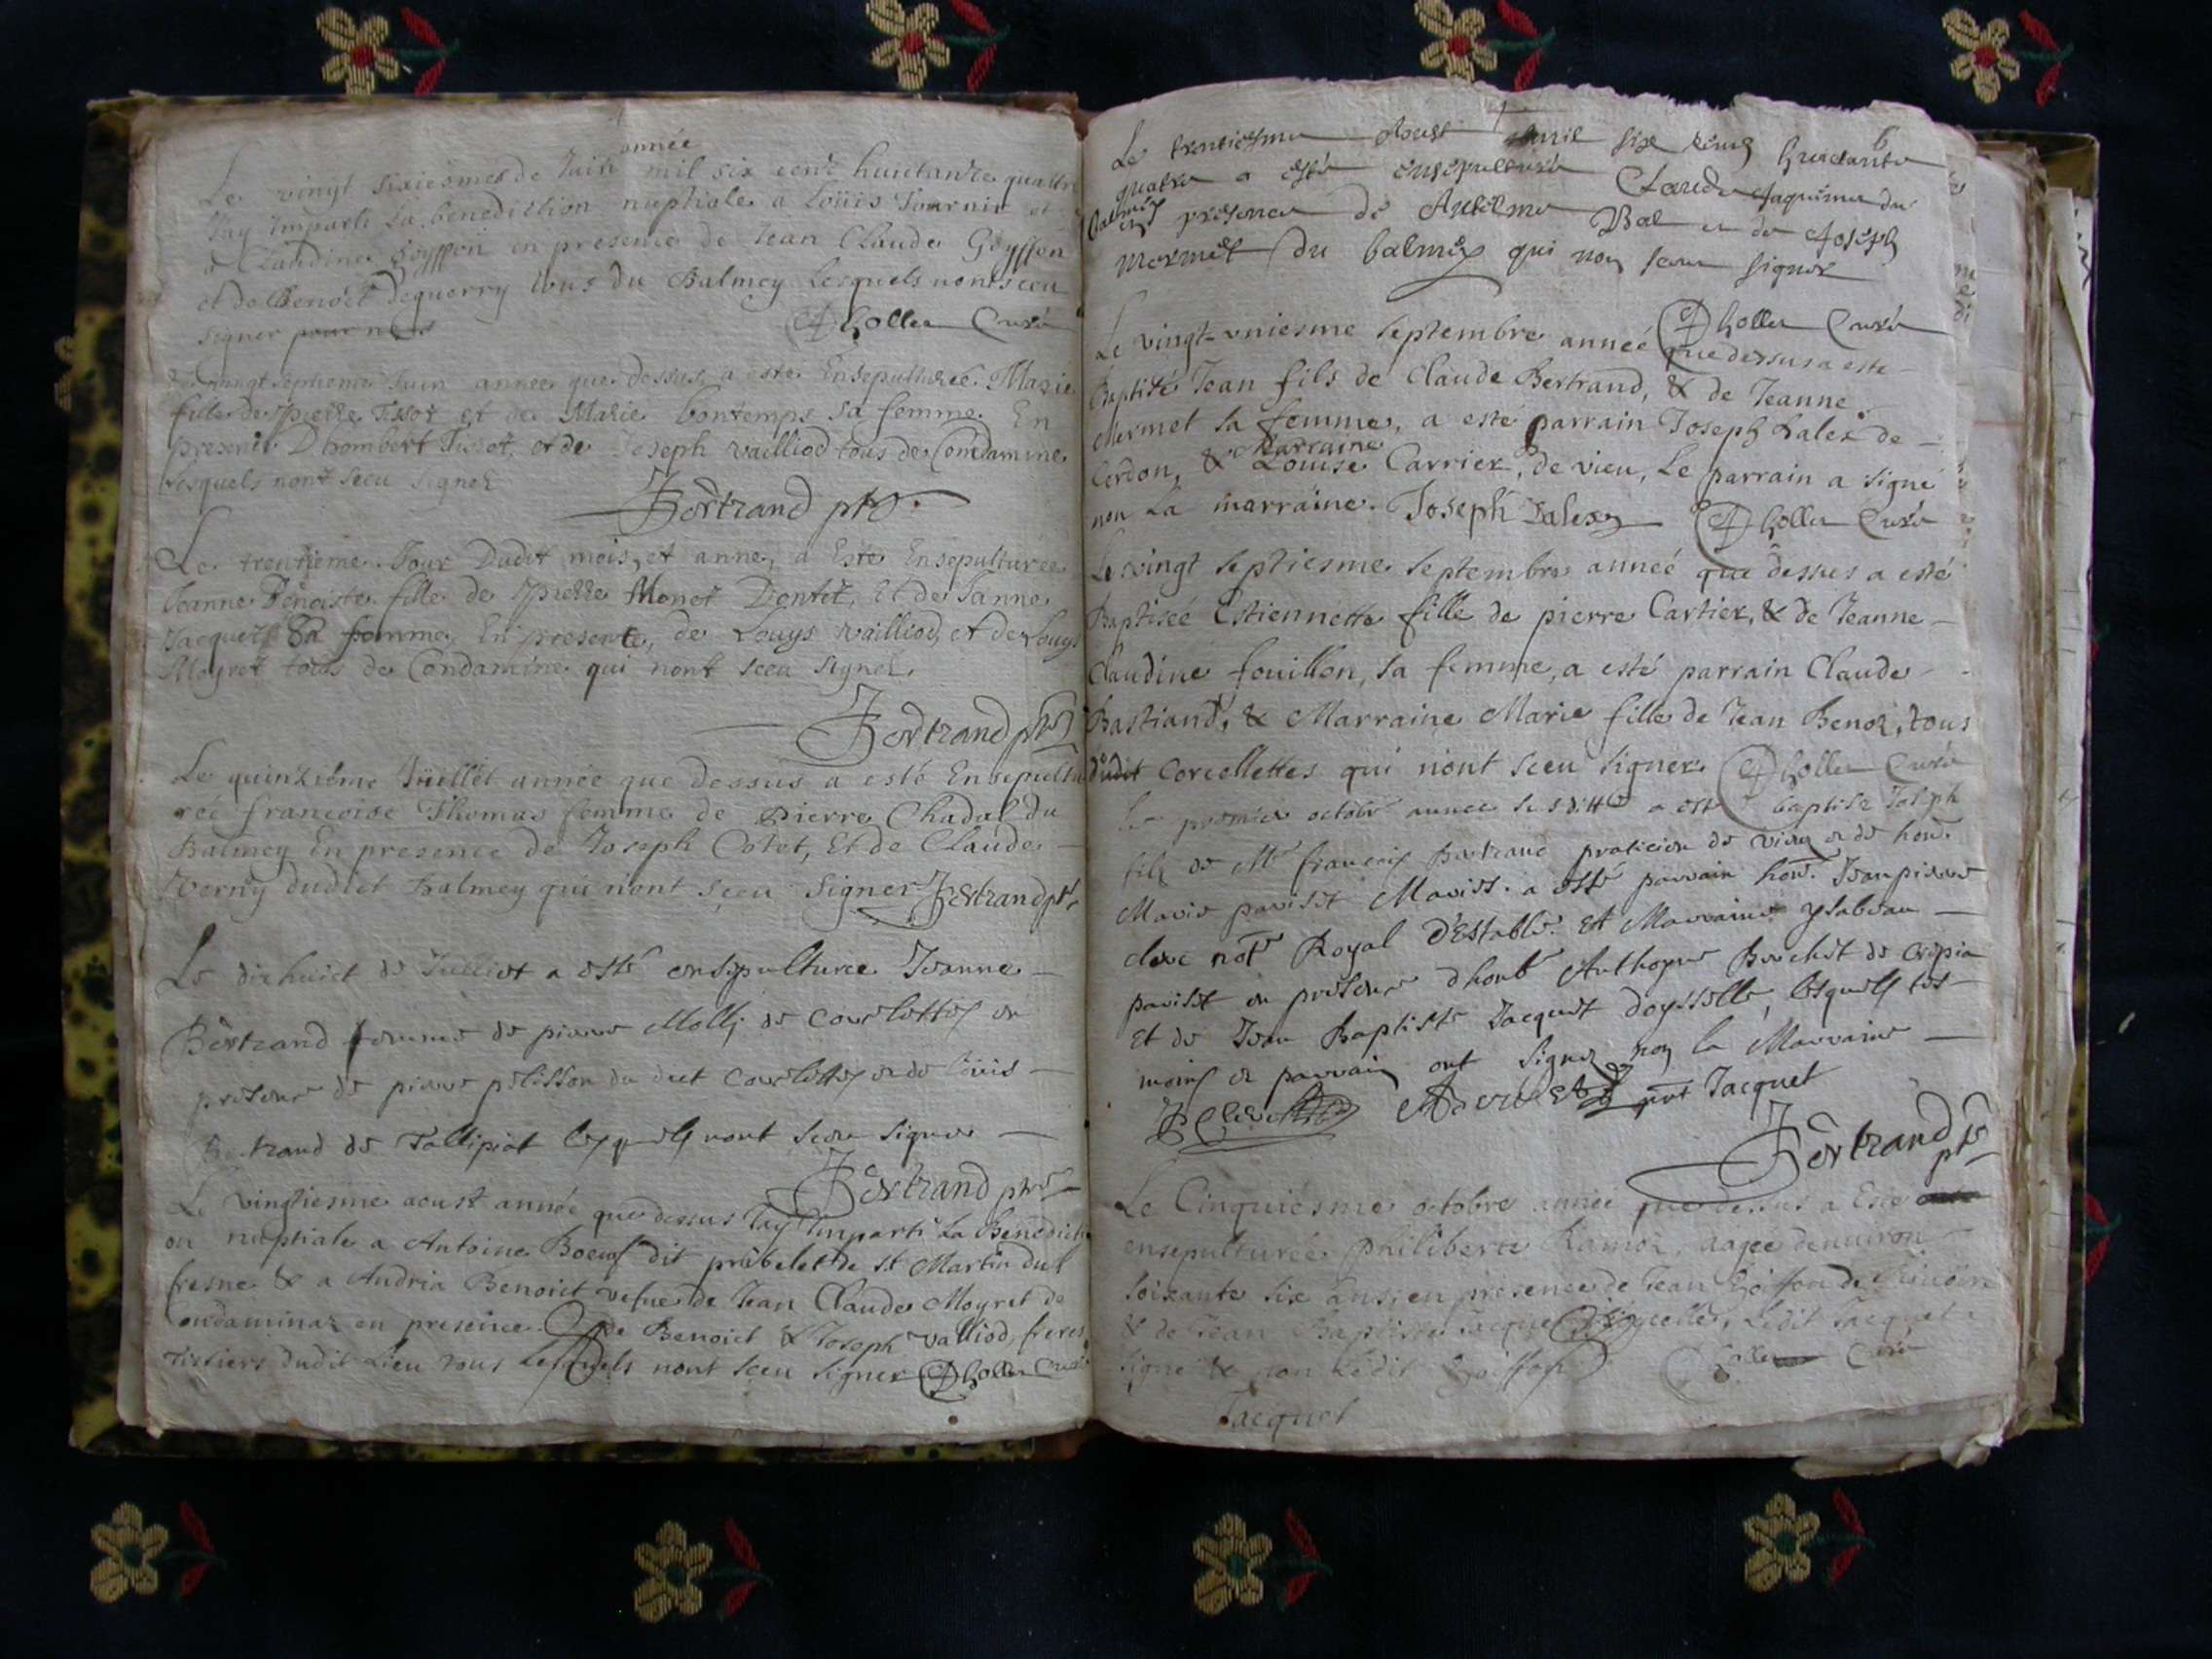 année
Le vingt sixiesme de Juin mil six cent huictante quattre
Jay imparti La benediction nuptiale a Loüis Fournir et
a Claudine Goyffon en presence de Jean Claude Goyffon
et de Benoict dequerry tous du Balmey Lesquels nont sceu
signer pour nes
Dhollen Curé
Le vingt septieme Juin annee que dessus a esté Ensepulturée Marie
fille de Pierre Tissot et de Marie bontemps sa femme En
presence Dhombert Tissot, et de Joseph vailliod tous de Condamine
Lesquels nont sceu signer
Bertrand ptre
Le trentieme Jour Dudit mois, et anne, a Esté Ensepulturée
Jeanne Benoiste fille de Pierre Monet Dontet, Et de Janne
Jacquet Sa femme, En presence, de Louys vailliod, et de Louys
Moyret tous de Condamine qui nont sceu signer.
Bertrand ptre
Le quinzième Juillet année que dessus a esté Ensepultu
rée francoise Thomas femme de Pierre Chadal du
Balmey En presence de Joseph Cotet, Et de Claude
Verny dudict balmey qui n'ont sçeu signer Bertrand ptre
Le dixhuict de Julliet a esté ensepulturee Jeanne
Bertrand femme de pierre Molly de Courlettes en
presence de pierre pelisson du dict Courlettes et de Loüis
Bertrand de Tallipiat lesquels nont sceu signer
Bertrand ptre
Le vingtiesme aoust année que dessus Jay Imparti La Benedicti
on nuptiale a Antoine Boeuf dit probelet de st Martin du
fresne & a Andria Benoict vefue de Jean Claude Moyret de
Condaminaz en presence de Benoict & Joseph valliod freres
tissiers dudit Lieu tous Lesquels nont sceu signer Dhollen Curé
6
Le trentiesme Aoust mil six cens huictante
quatre a esté ensepulturée Claude Jaquème du
Balmey en presence de Antelme Bal et de Joseph
Mermet du balmey qui non sceu signer
Dhollen Curé
Le vingt-uniesme septembre année que dessus a esté
Baptisé Jean fils de Claude Bertrand, & de Jeanne
Mermet sa femme, a esté parrain Joseph Lalex de
Marraine
Cerdon, & Louise Carrier, de vieu, Le parrain a signé
non La marraine. Joseph Lalex Dhollen Curé
Le vingt septiesme septembre année que dessus a esté
Baptisée Estiennette fille de pierre Cartier, & de Jeanne
Claudine fouillon, sa femme, a esté parrain Claude
Bastiand, & Marraine Marie fille de Jean Benoi, tous
dudit Corcellettes qui n'ont sceu signer Dhollen Curé
Le premier octobre annee susditte a esté baptisé Joseph
fils de Mre francois Bertrand praticien de vieu et de hon.
Marie pariset Maries. a esté parrain hon. Jean pierre
clerc notre Royal d'Estable. Et Marraine ysabeau
pariset en presence dhonble Anthoyne Brochet de Crepia
Et de Jean Baptiste Jacquet d'oysselle, lesquels tes-
moins et parrain ont signez non la Marraine
Jacquet
Bertrand ptre
Le Cinquiesme octobre année que dessus a Esté
ensepulturée philiberte Ramoz, aagée denuiron
soixante six ans, en presence de Jean Goiffon de
& de Jean Baptiste Jacquet D'oiscelle, Ledit Jacquet
signé & non Ledit Goiffon Dhollen Curé
Jacquet